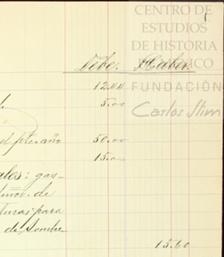 CENTRO DE
ESTUDIOS
DE HISTORIA
DE MÉXICO
FUNDACIÓN
Carlos Slim
Debe. Haber.
12.00
5.00
el pte. año 50.00
15.00
ales: gas-
turas para
de Sombre
15.60